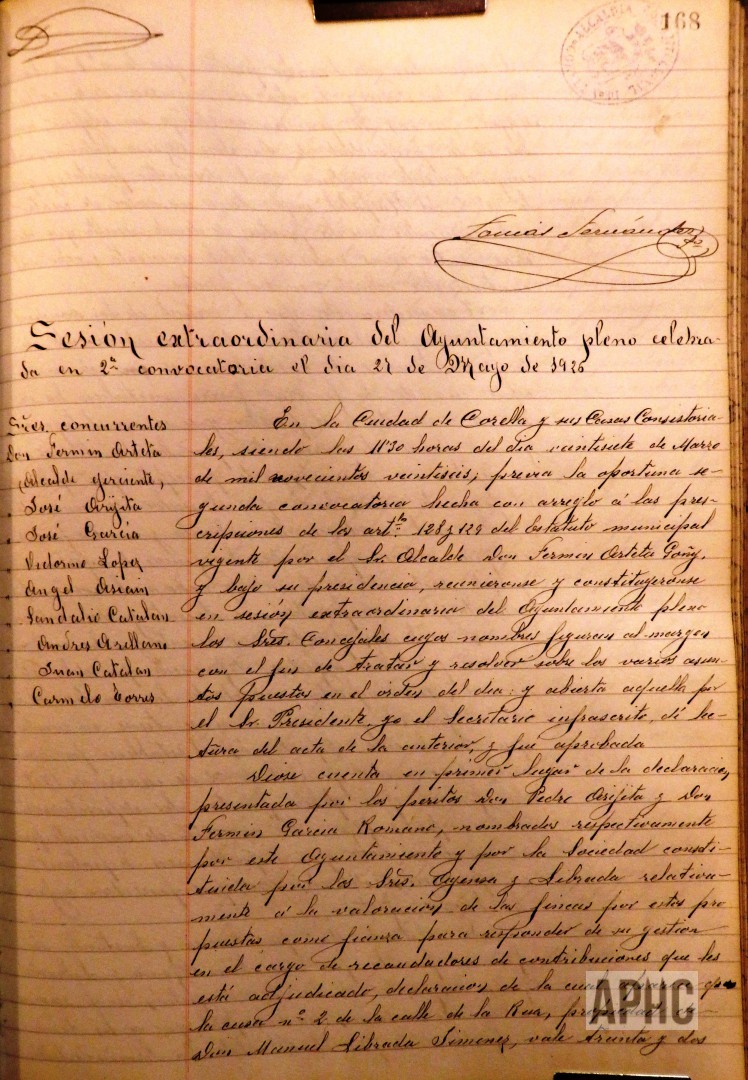 168
ALCALDIA
Tomás Fernández
Sesión extraordinaria del Ayuntamiento pleno celebra-
da en 2ª convocatoria el dia 27 de Mayo de 1926
Sres. concurrentes
Don Fermin Arteta
Alcalde gerciente,
" José Arijita
" José García
" Victorino Lopez
" Angel Arnain
" Sandalio Catalan
" Andres Arellano
" Juan Catalan
" Carmelo Torres
En la Ciudad de Corella y sus Casas Consistoria-
les, siendo las 11'30 horas del dia veintisiete de Marzo
de mil novecientos veintiseis; previa la oportuna se-
gunda convocatoria hecha con arreglo á las pres-
cripciones de los artos 128 y 129 del Estatuto municipal
vigente por el Sr. Alcalde Don Fermin Arteta Goñy,
y bajo su presidencia, reunieronse y constituyeronse
en sesión extraordinaria del Ayuntamiento pleno
los Sres. Concejales cuyos nombres figuran al margen
con el fin de tratar y resolver sobre los varios asun-
tos puestos en el órden del dia: y abierta aquella por
el Sr. Presidente, yo el Secretario infrascrito, dí lec-
tura del acta de la anterior, y fue aprobada
Diose cuenta en primer lugar de la declaracion
presentada por los peritos Don Pedro Arijita y Don
Fermin Garcia Romano, nombrados respectivamente
por este Ayuntamiento y por la Sociedad consti-
tuida por los Sres. Ayensa y Librada relativa-
mente á la valoración de las fincas por estos pro
puestas como fianza para responder de su gestion
en el cargo de recaudadores de contribuciones que les
está adjudicado, declaracion de la cual aparece que
la casa nº 2 de la calle de la Rua, propiedad de
Don Manuel Librada Jimenez, vale treinta y dos
APHC